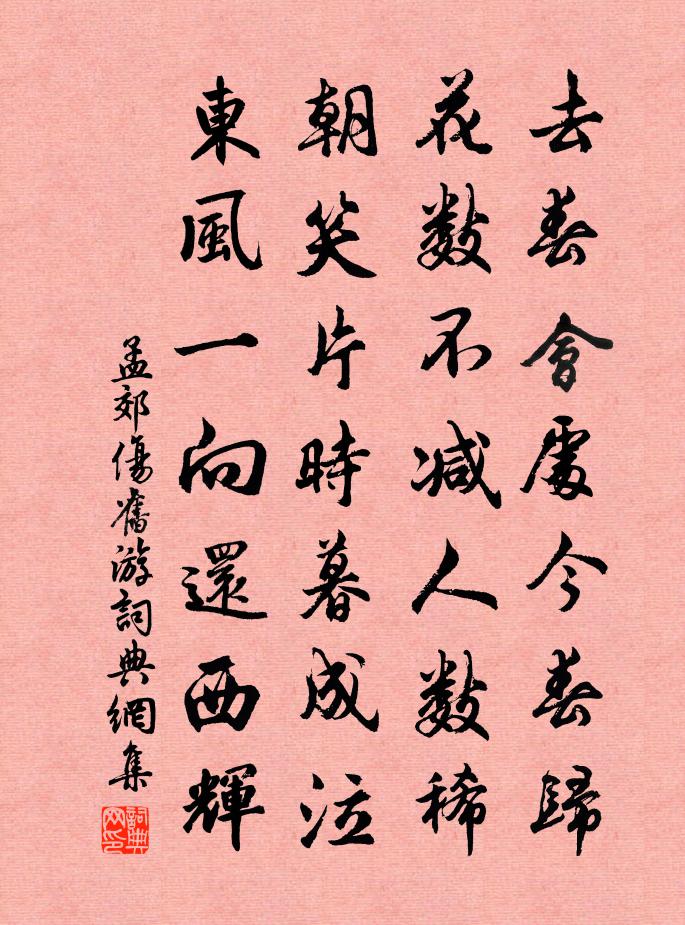 去春會處今春歸
花數不減人數稀
朝笑片時暮成泣
東風一向還西輝
孟郊傷舊游詞典網集
詞典网印